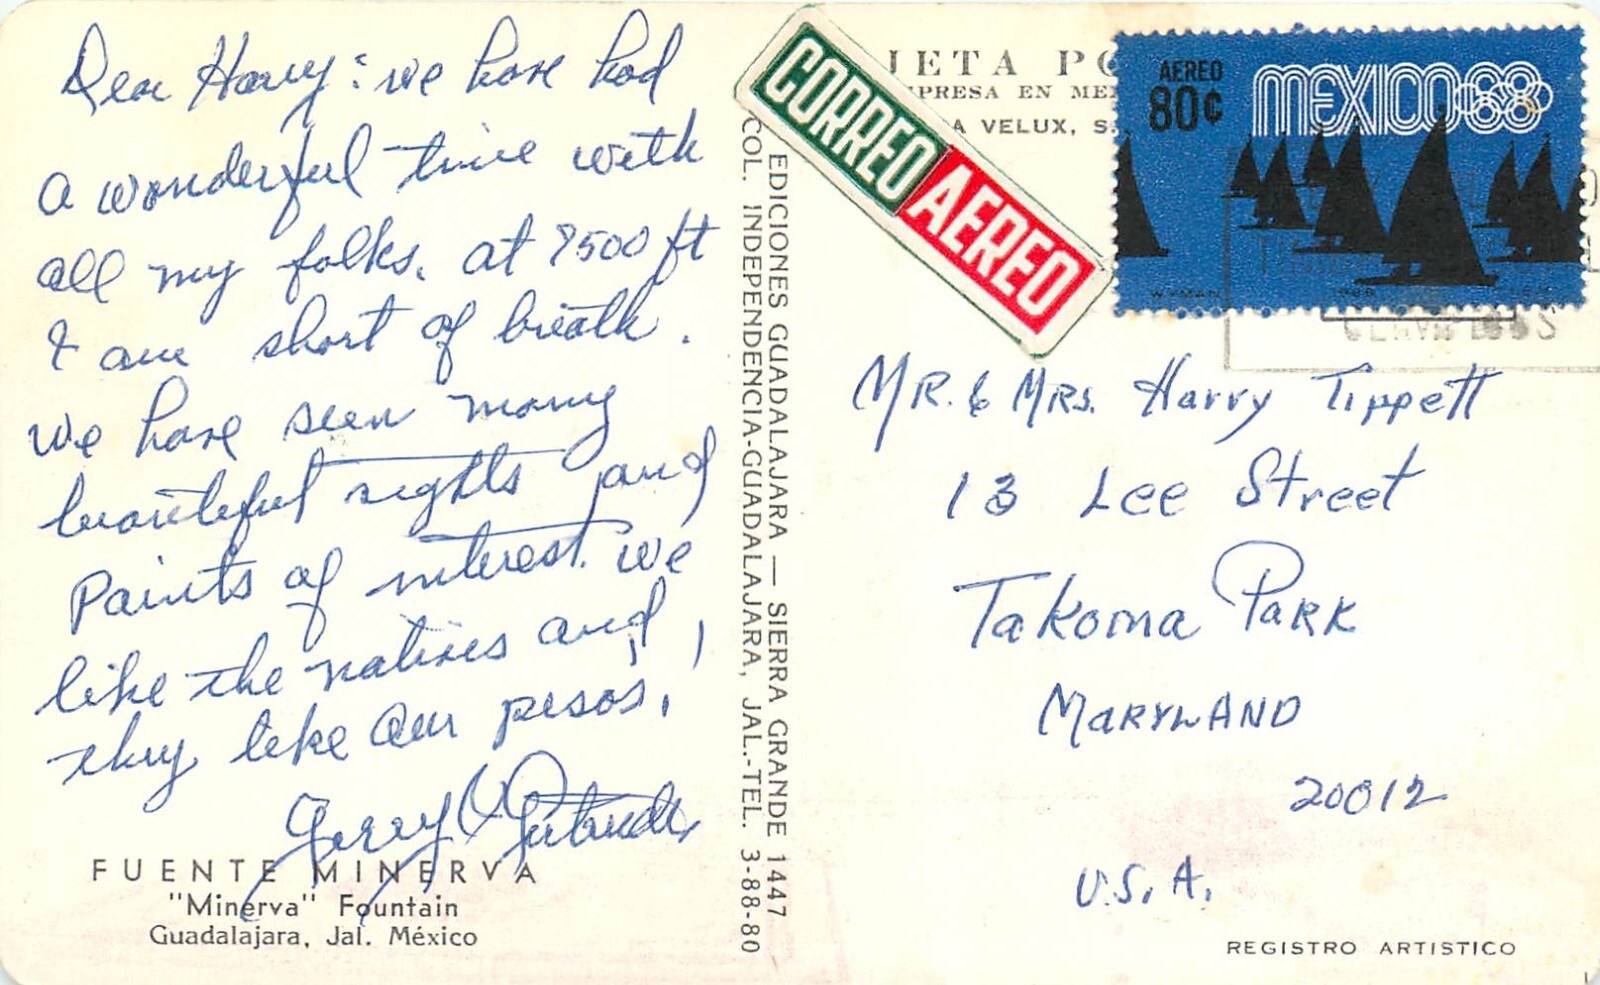 Dear Harry: we have had
a wonderful time with
all my folks. at 7500 ft
I am short of breath.
we have seen many
beautiful sights and
points of interest. we
like the natives and,
they like our pesos,
Gerry & Gertrude
FUENTE MINERVA
"Minerva" Fountain
Guadalajara, Jal. México
EDICIONES GUADALAJARA — SIERRA GRANDE 1447
COL. INDEPENDENCIA-GUADALAJARA, JAL.-TEL. 3-88-80
CORREO AEREO
JETA PO
MPRESA EN MEX
A VELUX, S.
AEREO
80¢
MEXICO68
WYMAN 1968
MR. & MRS. Harry Tippett
13 Lee Street
Takoma Park
MARYLAND
20012
U.S.A.
REGISTRO ARTISTICO